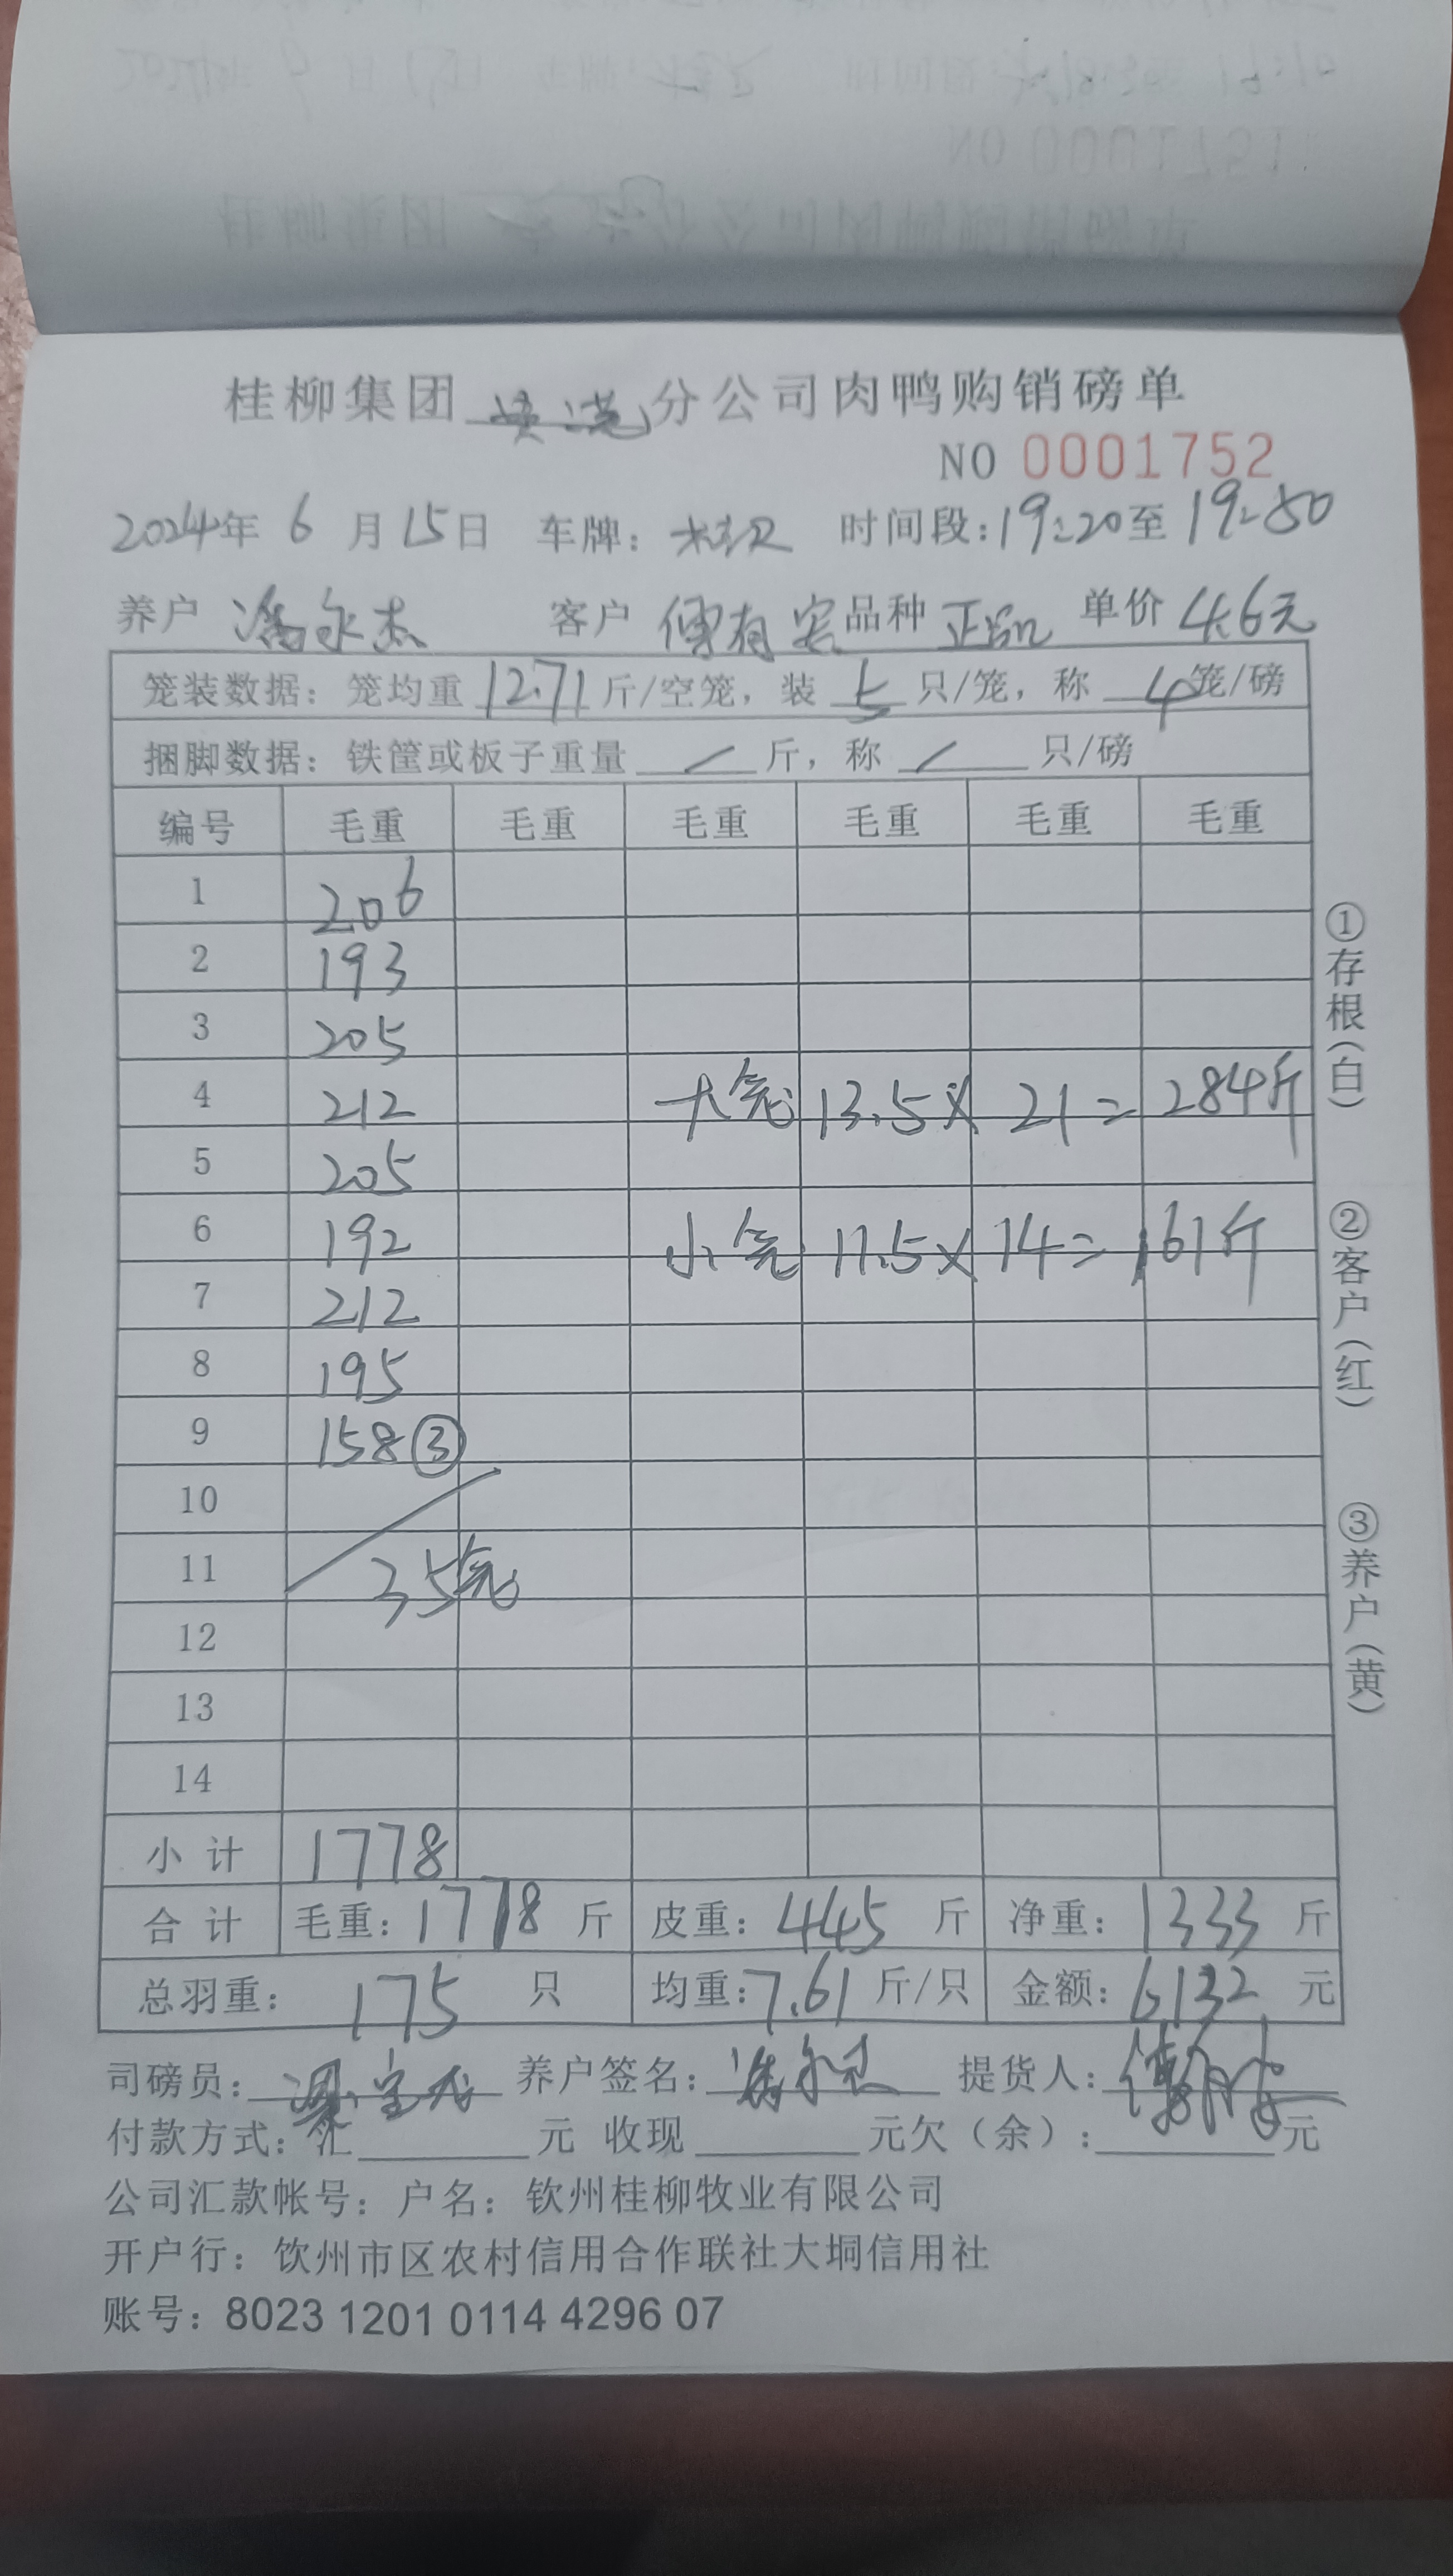 桂柳集团 分公司肉鸭购销磅单
NO 0001752
2024年 6 月 15日 车牌: 时间段:19:20至 19:50
养户 潘永杰 客户 傅有 品种 正品 单价 4.6元
笼装数据: 笼均重 12.71 斤/空笼, 装 5 只/笼, 称 4 笼/磅
捆脚数据: 铁筐或板子重量 / 斤, 称 / 只/磅
编号 毛重 毛重 毛重 毛重 毛重 毛重
1 206
2 193
3 205
4 212 大笼 13.5 × 21 = 284斤
5 205
6 192 小笼 11.5 × 14 = 161斤
7 212
8 195
9 158 ③
10
11 35笼
12
13
14
小 计 1778
合 计 毛重: 1778 斤 皮重: 445 斤 净重: 1333 斤
总羽重: 175 只 均重: 7.61 斤/只 金额: 6132 元
司磅员: 养户签名: 提货人:
付款方式: 汇 元 收现 元欠(余): 元
公司汇款帐号: 户名: 钦州桂柳牧业有限公司
开户行: 饮州市区农村信用合作联社大垌信用社
账号: 8023 1201 0114 4296 07
①存根(白)
②客户(红)
③养户(黄)